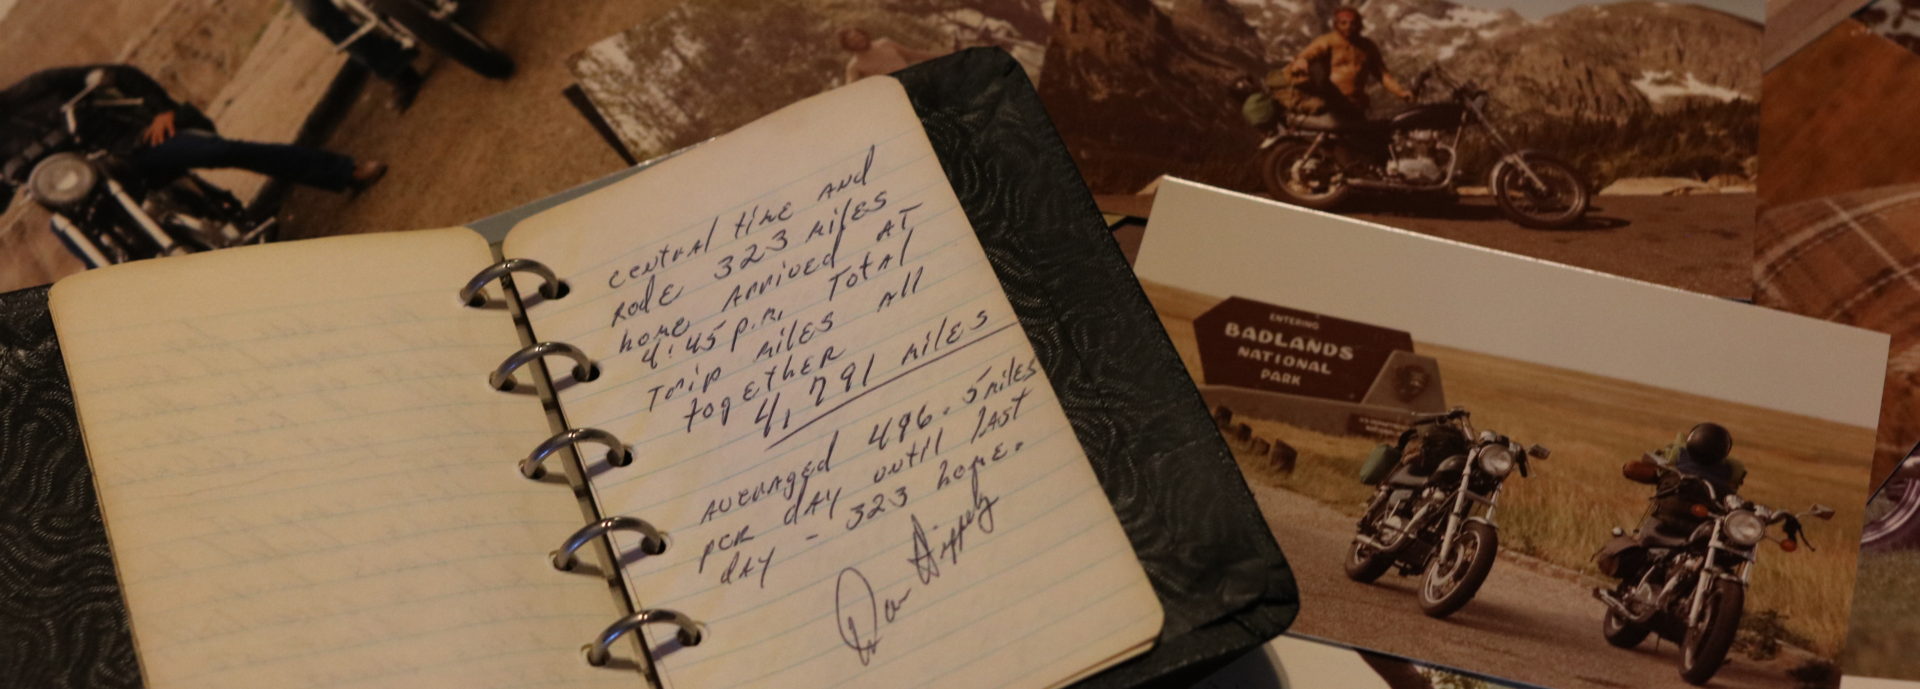 central time and
rode 323 miles
home Arrived AT
4:45 p.m. Total
Trip miles All
together
4,791 miles
Averaged 496.5 miles
per day until last
day - 323 home.
Dan
ENTERING
BADLANDS
NATIONAL
PARK